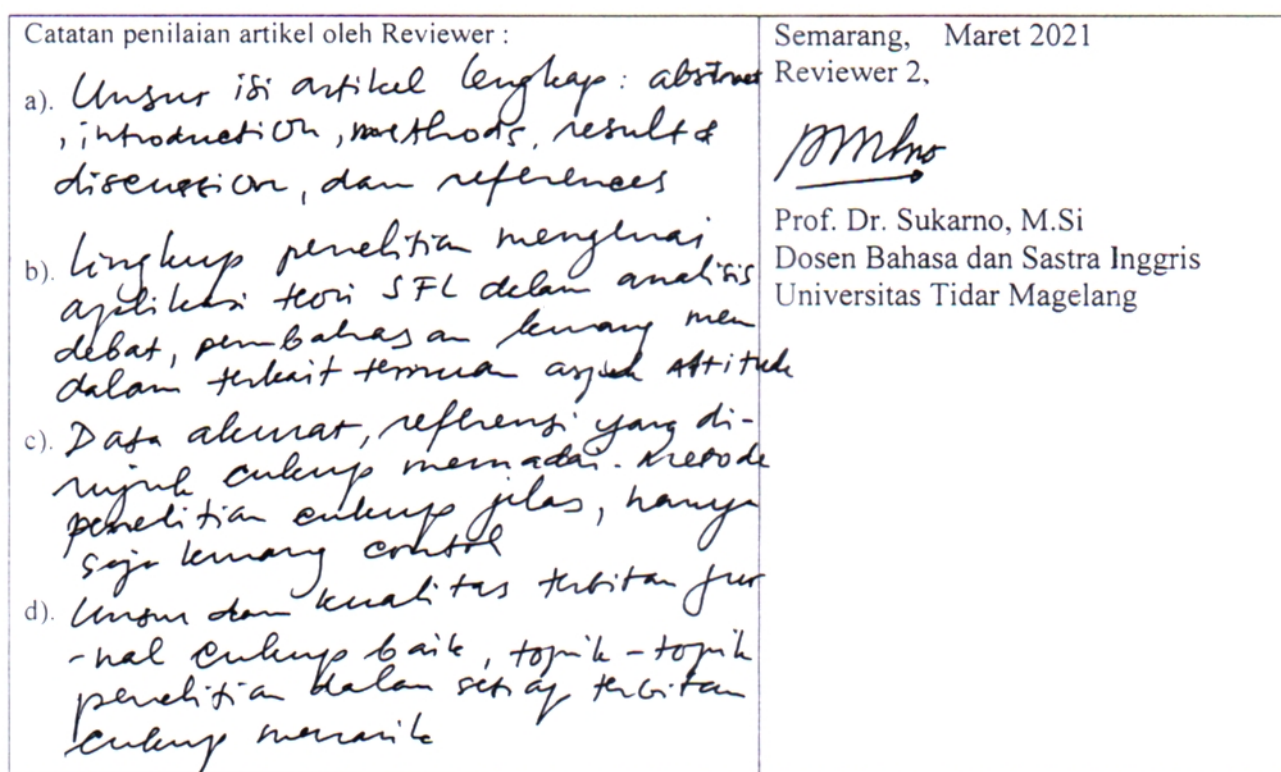 Catatan penilaian artikel oleh Reviewer :
a). Unsur isi artikel lengkap : abstract
, introduction, methods, result &
discussion, dan references
b). Lingkup penelitian mengenai
aplikasi teori SFL dalam analisis
debat, pembahasan kurang men
dalam terkait temuan aspek Attitude
c). Data akurat, referensi yang di-
rujuk cukup memadai. Metode
penelitian cukup jelas, hanya
saja kurang
d). Unsur dan kualitas terbitan jur
-nal cukup baik, topik-topik
penelitian dalam setiap terbitan
cukup menarik
Semarang, Maret 2021
Reviewer 2,
Prof. Dr. Sukarno, M.Si
Dosen Bahasa dan Sastra Inggris
Universitas Tidar Magelang